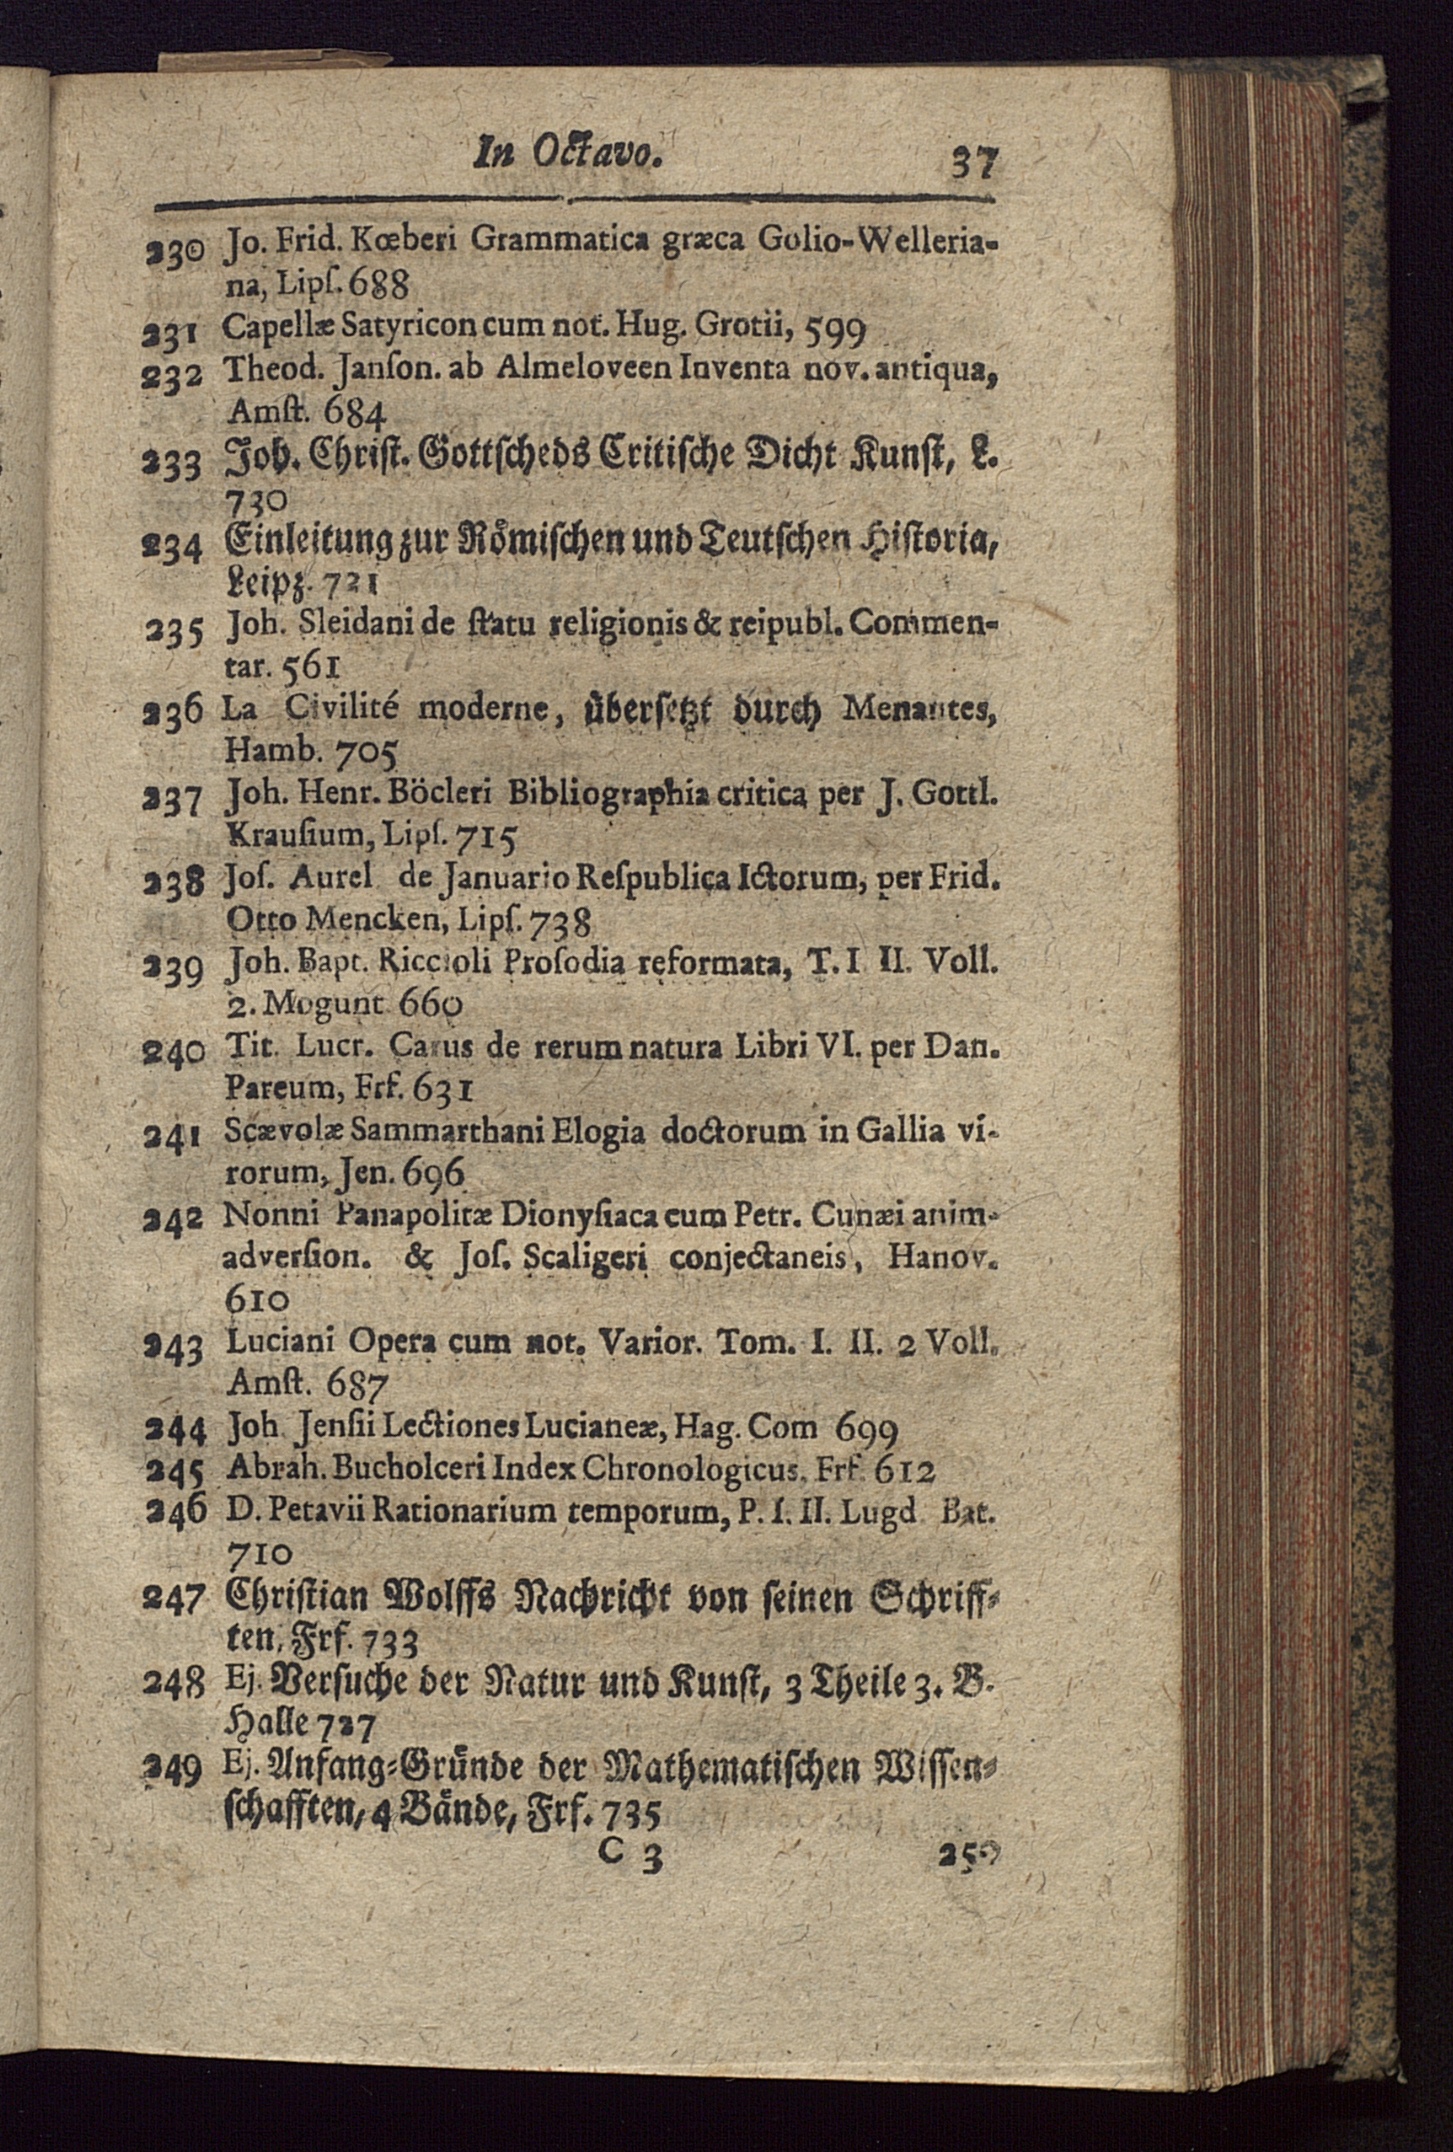 In Octavo. 37
230 Jo. Frid. Kœberi Grammatica græca Golio-Welleria-
na, Lipſ. 688
231 Capellæ Satyricon cum not. Hug. Grotii, 599
232 Theod. Janſon. ab Almeloveen Inventa nov. antiqua,
Amſt. 684
233 Joh. Chriſt. Gottſcheds Critiſche Dicht Kunſt, L.
730
234 Einleitung zur Römiſchen und Teutſchen Hiſtoria,
Leipz. 721
235 Joh. Sleidani de ſtatu religionis & reipubl. Commen-
tar. 561
236 La Civilité moderne, überſetzt durch Menantes,
Hamb. 705
237 Joh. Henr. Böcleri Bibliographia critica per J. Gottl.
Krauſium, Lipſ. 715
238 Joſ. Aurel de Januario Reſpublica Ictorum, per Frid.
Otto Mencken, Lipſ. 738
239 Joh. Bapt. Riccioli Proſodia reformata, T. I II. Voll.
2. Mogunt 660
240 Tit. Lucr. Carus de rerum natura Libri VI. per Dan.
Pareum, Frf. 631
241 Scævolæ Sammarthani Elogia doctorum in Gallia vi-
rorum, Jen. 696
242 Nonni Panapolitæ Dionyſiaca cum Petr. Cunæi anim-
adverſion. & Joſ. Scaligeri conjectaneis, Hanov.
610
243 Luciani Opera cum not. Varior. Tom. I. II. 2 Voll.
Amſt. 687
244 Joh Jenſii Lectiones Lucianeæ, Hag. Com 699
245 Abrah. Bucholceri Index Chronologicus. Frf. 612
246 D. Petavii Rationarium temporum, P. I. II. Lugd Bat.
710
247 Chriſtian Wolffs Nachricht von ſeinen Schriff-
ten, Frf. 733
248 Ej. Verſuche der Natur und Kunſt, 3 Theile 3. B.
Halle 727
249 Ej. Anfang-Gründe der Mathematiſchen Wiſſen-
ſchafften, 4 Bände, Frf. 735
C 3 250